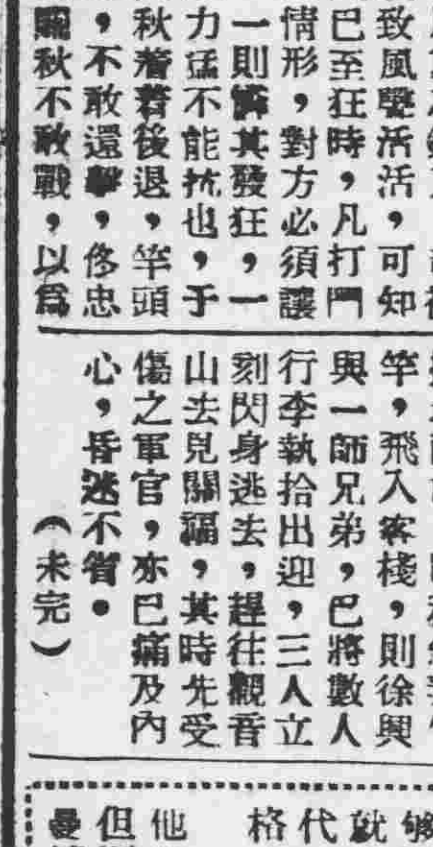 致風聲活活,可知
巳至狂時,凡打鬥
情形,對方必須讓
一則其發狂,一
力猛不能抗也,于
秋着着後退,竿頭
,不敢還擊,侈忠
關秋不敢戰,以爲
竿,飛入客棧,則徐興
與一師兄弟,巳將數人
行李執拾出迎,三人立
刻閃身逃去,趕往觀音
山去見關福,其時先受
傷之軍官,亦巳痛及內
心,昏迷不省。
(未完)
够
就
代
格
他
但
曼